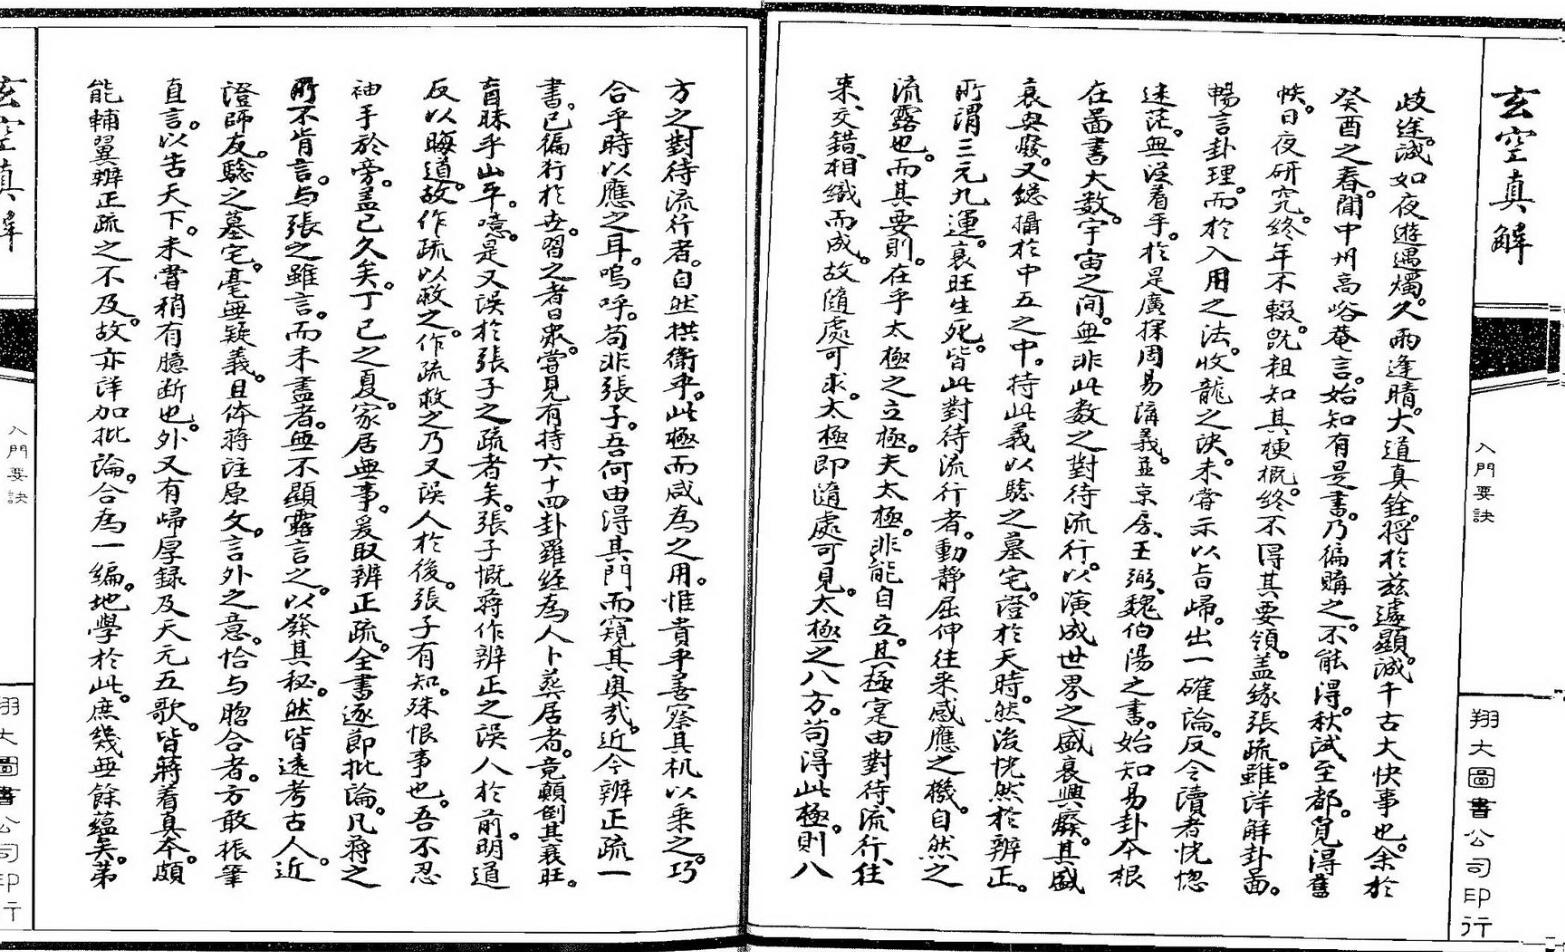 玄空真解
入門要訣
翔大圖書公司印行
歧途。誠如夜遊遇燭。久雨逢晴。大道真銓。將於茲遽顯。誠千古大快事也。余於
癸酉之春。聞中州高峪菴言。始知有是書。乃徧購之。不能得。秋試至都。覓得舊
帙。日夜研究。終年不輟。旣粗知其梗概。終不得其要領。盖緣張疏。雖詳解卦畐。
暢言卦理。而於入用之法。收龍之訣。未嘗示以旨歸。出一確論。反令讀者恍惚
迷茫。無從着手。於是廣探周易講義。並京房、王弼、魏伯陽之書。始知易卦本根
在畐書大数。宇宙之间。無非此数之對待流行。以演成世界之盛衰興癈。其盛
衰興癈。又總攝於中五之中。持此義以驗之墓宅。證於天時。然後恍然於辨正。
所謂三元九運。衰旺生死。皆此對待流行者。動靜屈伸往来感應之機。自然之
流露也。而其要則。在乎太極之立極。夫太極。非能自立。其極寔由對待、流行、往
来、交錯、相織而成。故随處可求。太極即随處可見。太極之八方。苟得此極。則八
方之對待流行者。自然拱衛乎。此極而咸為之用。惟貴乎善察其机以乘之。巧
合乎時以應之耳。嗚呼。苟非張子。吾何由得其門而窺其奥哉。近今辨正疏一
書。已徧行於世。習之者日衆。嘗見有持六十四卦羅經為人卜葬居者。竟顛倒其衰旺。
盲昧乎山平。噫。是又誤於張子之疏者矣。張子慨蔣作辨正之誤人於前。明道
反以晦道。故作疏以救之。作疏救之乃又誤人於後。張子有知。殊恨事也。吾不忍
袖手於旁。盖已久矣。丁巳之夏。家居無事。爰取辨正疏。全書逐節批論。凡蔣之
所不肯言。与張之雖言。而未盡者。無不顯露言之。以發其秘。然皆遠考古人。近
證師友。驗之墓宅。毫無疑義。且倅蔣註原文。言外之意。恰与脗合者。方敢振筆
直言。以告天下。未嘗稍有臆断也。外又有歸厚録及天元五歌。皆蔣着真本。頗
能輔翼辨正疏之不及。故亦詳加批論。合為一編。地學於此。庶幾無餘蘊矣。第
玄空真解
入門要訣
翔大圖書公司印行